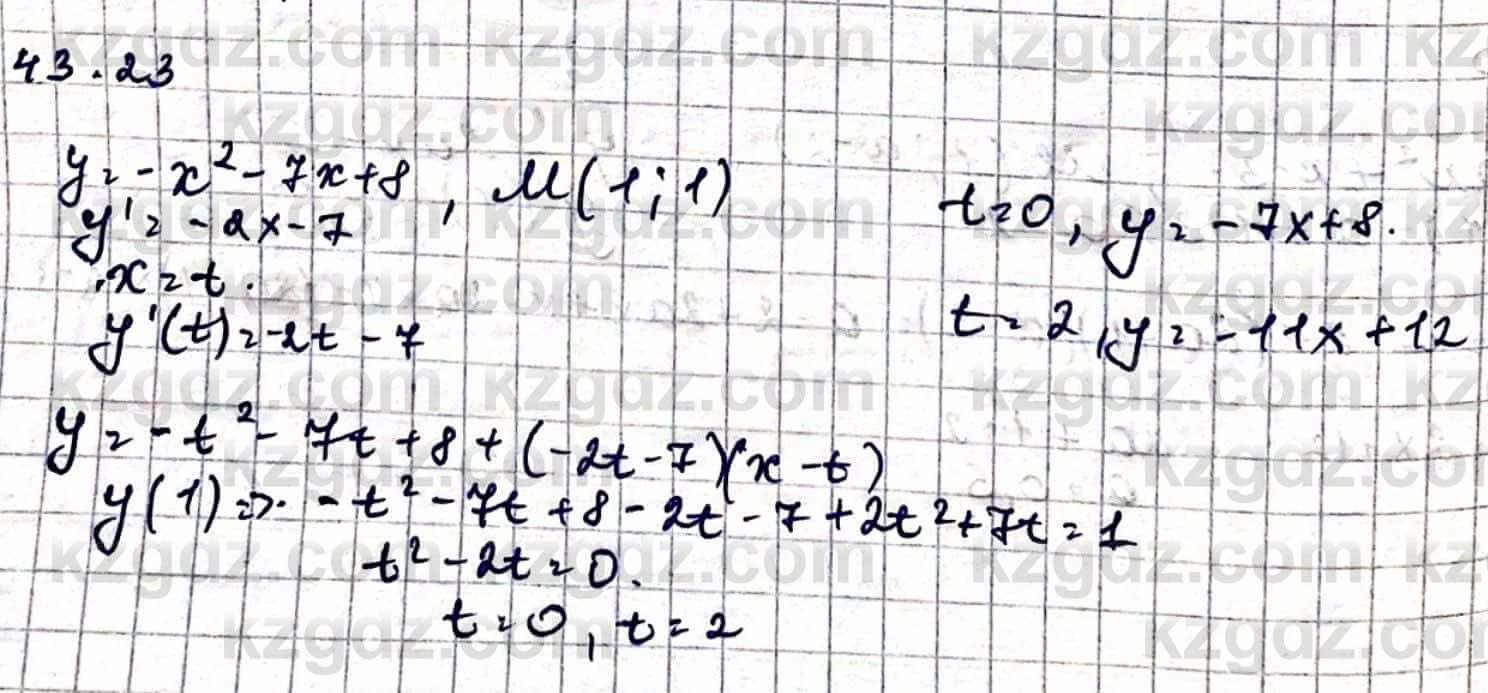 43.23
y = -x² - 7x + 8, M(1; 1)
y' = -2x - 7
x = t.
y'(t) = -2t - 7
y = -t² - 7t + 8 + (-2t - 7)(x - t)
y(1) => -t² - 7t + 8 - 2t - 7 + 2t² + 7t = 1
t² - 2t = 0.
t = 0, t = 2
t = 0, y = -7x + 8.
t = 2, y = -11x + 12
kzgdz.com